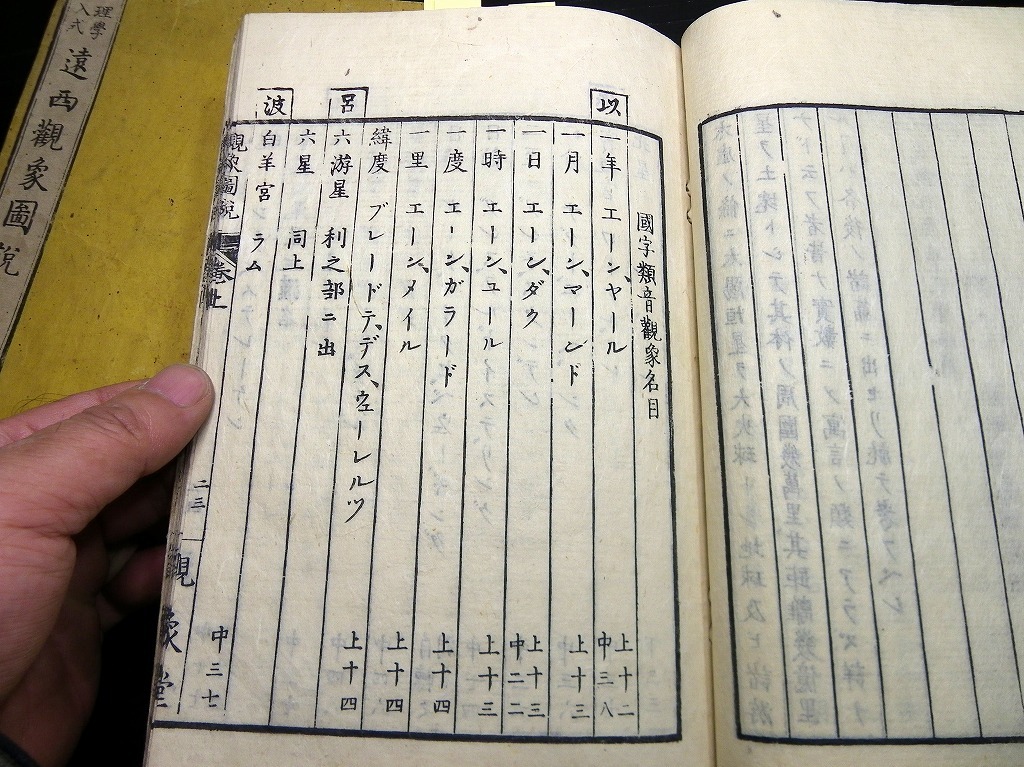 理學
入式
遠西觀象圖說
國字類音觀象名目
以
一年 エーン、ヤール 上十二 中三八
一月 エーン、マーンド 上十三
一日 エーン、ダク 上十三 中二二
一時 エーン、ユール 上十三
一度 エーン、ガラード 上十四
一里 エーン、メイル
緯度 ブレードテ、デス、ウェーレルツ 上十四
呂
六游星 利之部ニ出 上十四
六星 同上
波
白羊宮 ラム 中三七
觀象圖說 卷上 二三 觀象堂